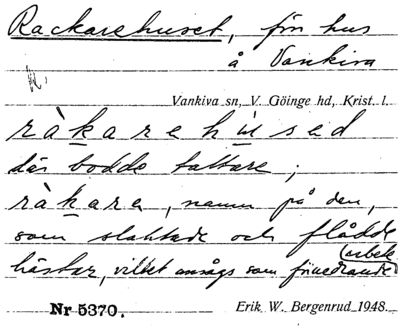 Rackarehuset, fin hus
å Vankiva
Vankiva sn, V. Göinge hd, Krist. l.
ràkarehu̇sed
där bodde tattare;
ràkare, namn på den,
som slaktade och flådde
hästar, vilket ansågs som förnedrande (arbete
Nr 5370. Erik W. Bergenrud 1948.